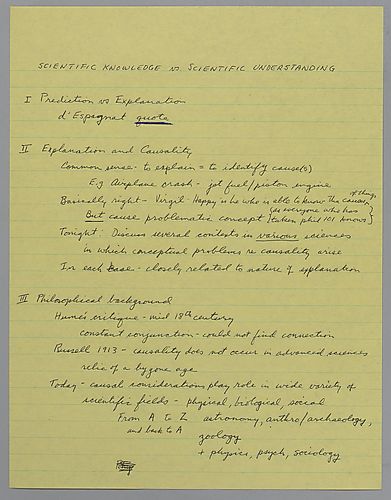 SCIENTIFIC KNOWLEDGE vs. SCIENTIFIC UNDERSTANDING
I Prediction vs Explanation
d'Espagnat quote
II Explanation and Causality
Common sense - to explain = to identify cause(s)
E.g Airplane crash - jet fuel/piston engine
Basically right - Virgil - Happy is he who is able to know the causes of things
But cause problematic concept {as everyone who has taken phil 101 knows}
Tonight: Discuss several contexts in various sciences
in which conceptual problems re causality arise
In each case - closely related to nature of explanation
III Philosophical background
Hume's critique - mid 18th century
constant conjunction - could not find connection
Russell 1913 - causality does not occur in advanced sciences
relic of a bygone age
Today - causal considerations play role in wide variety of
scientific fields - physical, biological, social
From A to Z astronomy, anthro/archaeology,
and back to A zoology
+ physics, psych, sociology